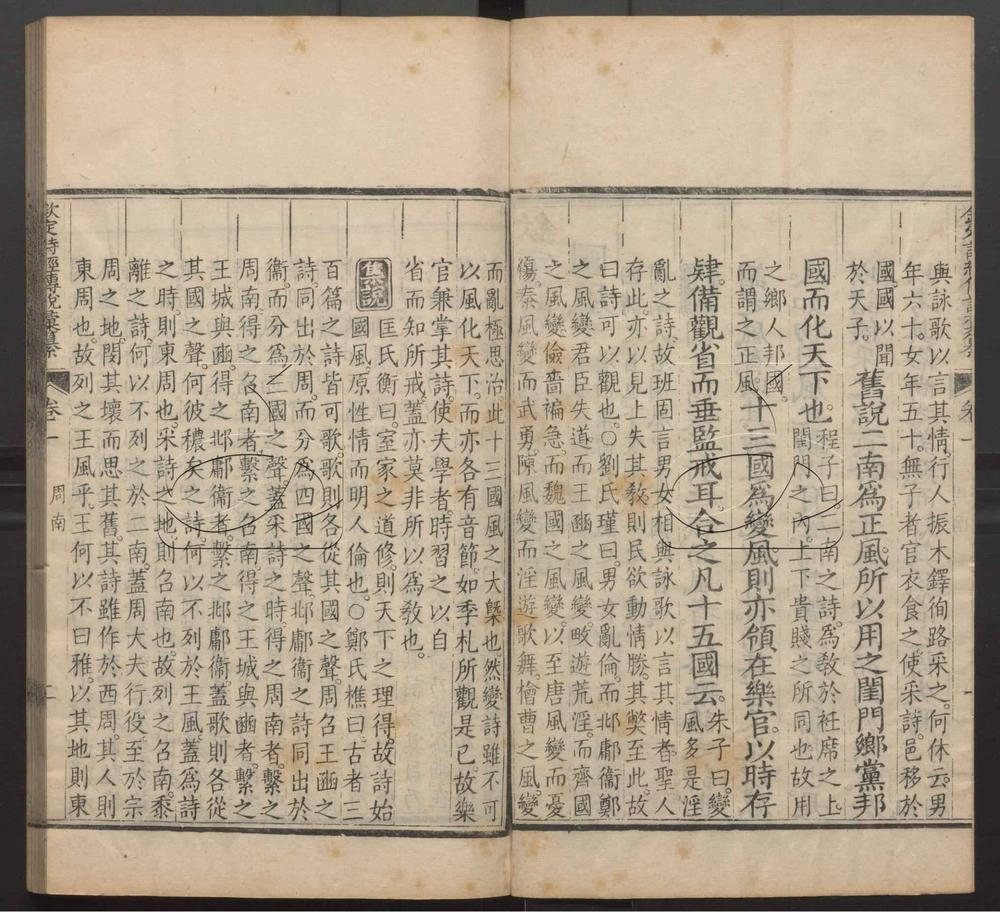 與詠歌以言其情行人振木鐸徇路采之何休云男
年六十女年五十無子者官衣食之使采詩邑移於
國國以聞
於天子。舊說二南爲正風。所以用之閨門鄉黨邦
國而化天下也。程子曰。二南之詩。爲教於衽席之上。
閨門之內。上下貴賤之所同也。故用
之鄉人邦國。
而謂之正風。十三國爲變風。則亦領在樂官。以時存
肄。備觀省而垂監戒耳。合之凡十五國云。朱子曰。變
風多是淫
亂之詩。故班固言男女相與詠歌以言其情者。聖人
存此。亦以見上失其教。則民欲動情勝。其獘至此。故
曰詩可以觀也。○劉氏瑾曰。男女亂倫。而邶鄘衞鄭
之風變。君臣失道。而王豳之風變。畋遊荒淫。而齊國
之風變。儉嗇褊急。而魏國之風變。以至唐風變而憂
傷。秦風變而武勇。陳風變而淫遊歌舞。檜曹之風變
而亂極思治。此十三國風之大槩也。然變詩雖不可
以風化天下。而亦各有音節。如季札所觀是已。故樂
官兼掌其詩。使夫學者。時習之以自
省而知所戒。蓋亦莫非所以爲教也。
集說 匡氏衡曰。室家之道修。則天下之理得。故詩始
國風。原性情而明人倫也。○鄭氏樵曰。古者三
百篇之詩。皆可歌。歌則各從其國之聲。周召王豳之
詩。同出於周。而分爲四國之聲。邶鄘衞之詩同出於
衞。而分爲三國之聲。蓋采詩之時。得之周南者。繫之
周南。得之召南者。繫之召南。得之王城與豳者。繫之
王城與豳。得之邶鄘衞者。繫之邶鄘衞。蓋歌則各從
其國之聲。何彼穠矣之詩。何以不列於王風。蓋爲詩
之時。則東周也。采詩之地。則召南也。故列之召南。黍
離之詩。何以不列之於二南。蓋周大夫行役至於宗
周之地。閔其壞而思其舊。其詩雖作於西周。其人則
東周也。故列之王風乎。王何以不曰雅。以其地則東
欽定詩經傳說彙纂 卷一 周南 二